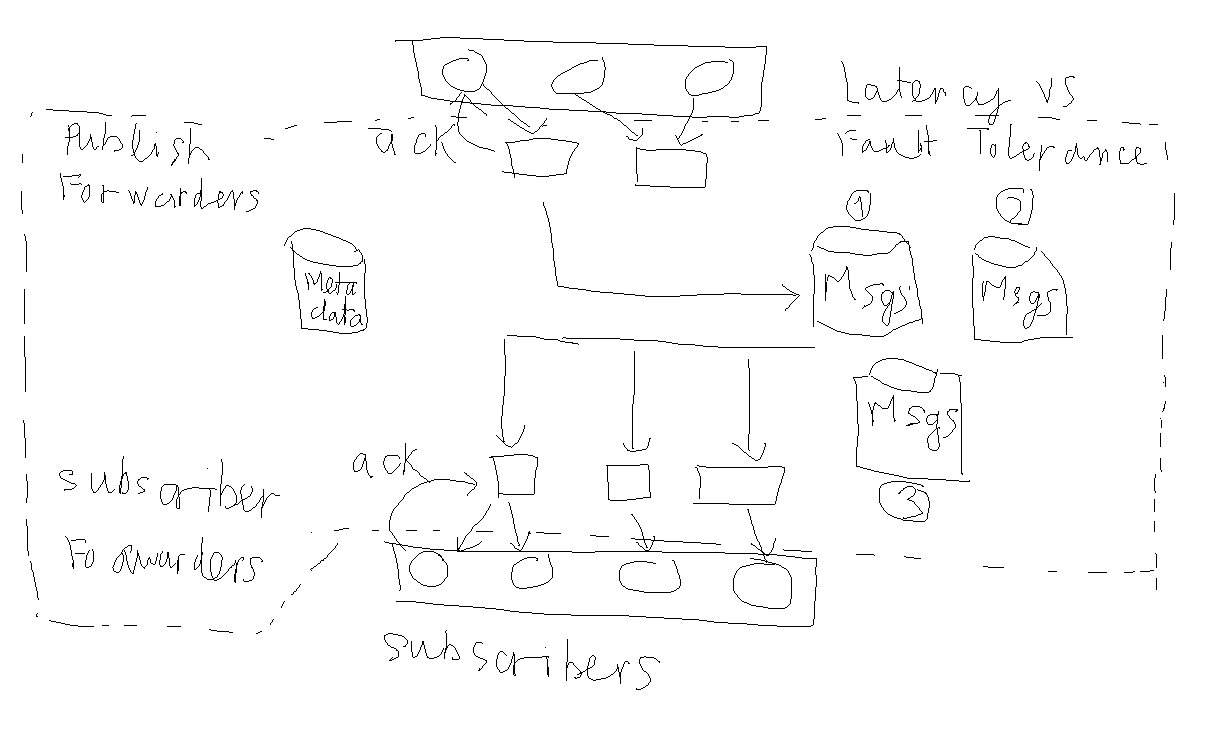 Latency vs
Fault Tolerance
Publish
Forwarders
ack
1
2
Meta
data
Msgs
Msgs
Msgs
3
ack
subscriber
Forwarders
subscribers